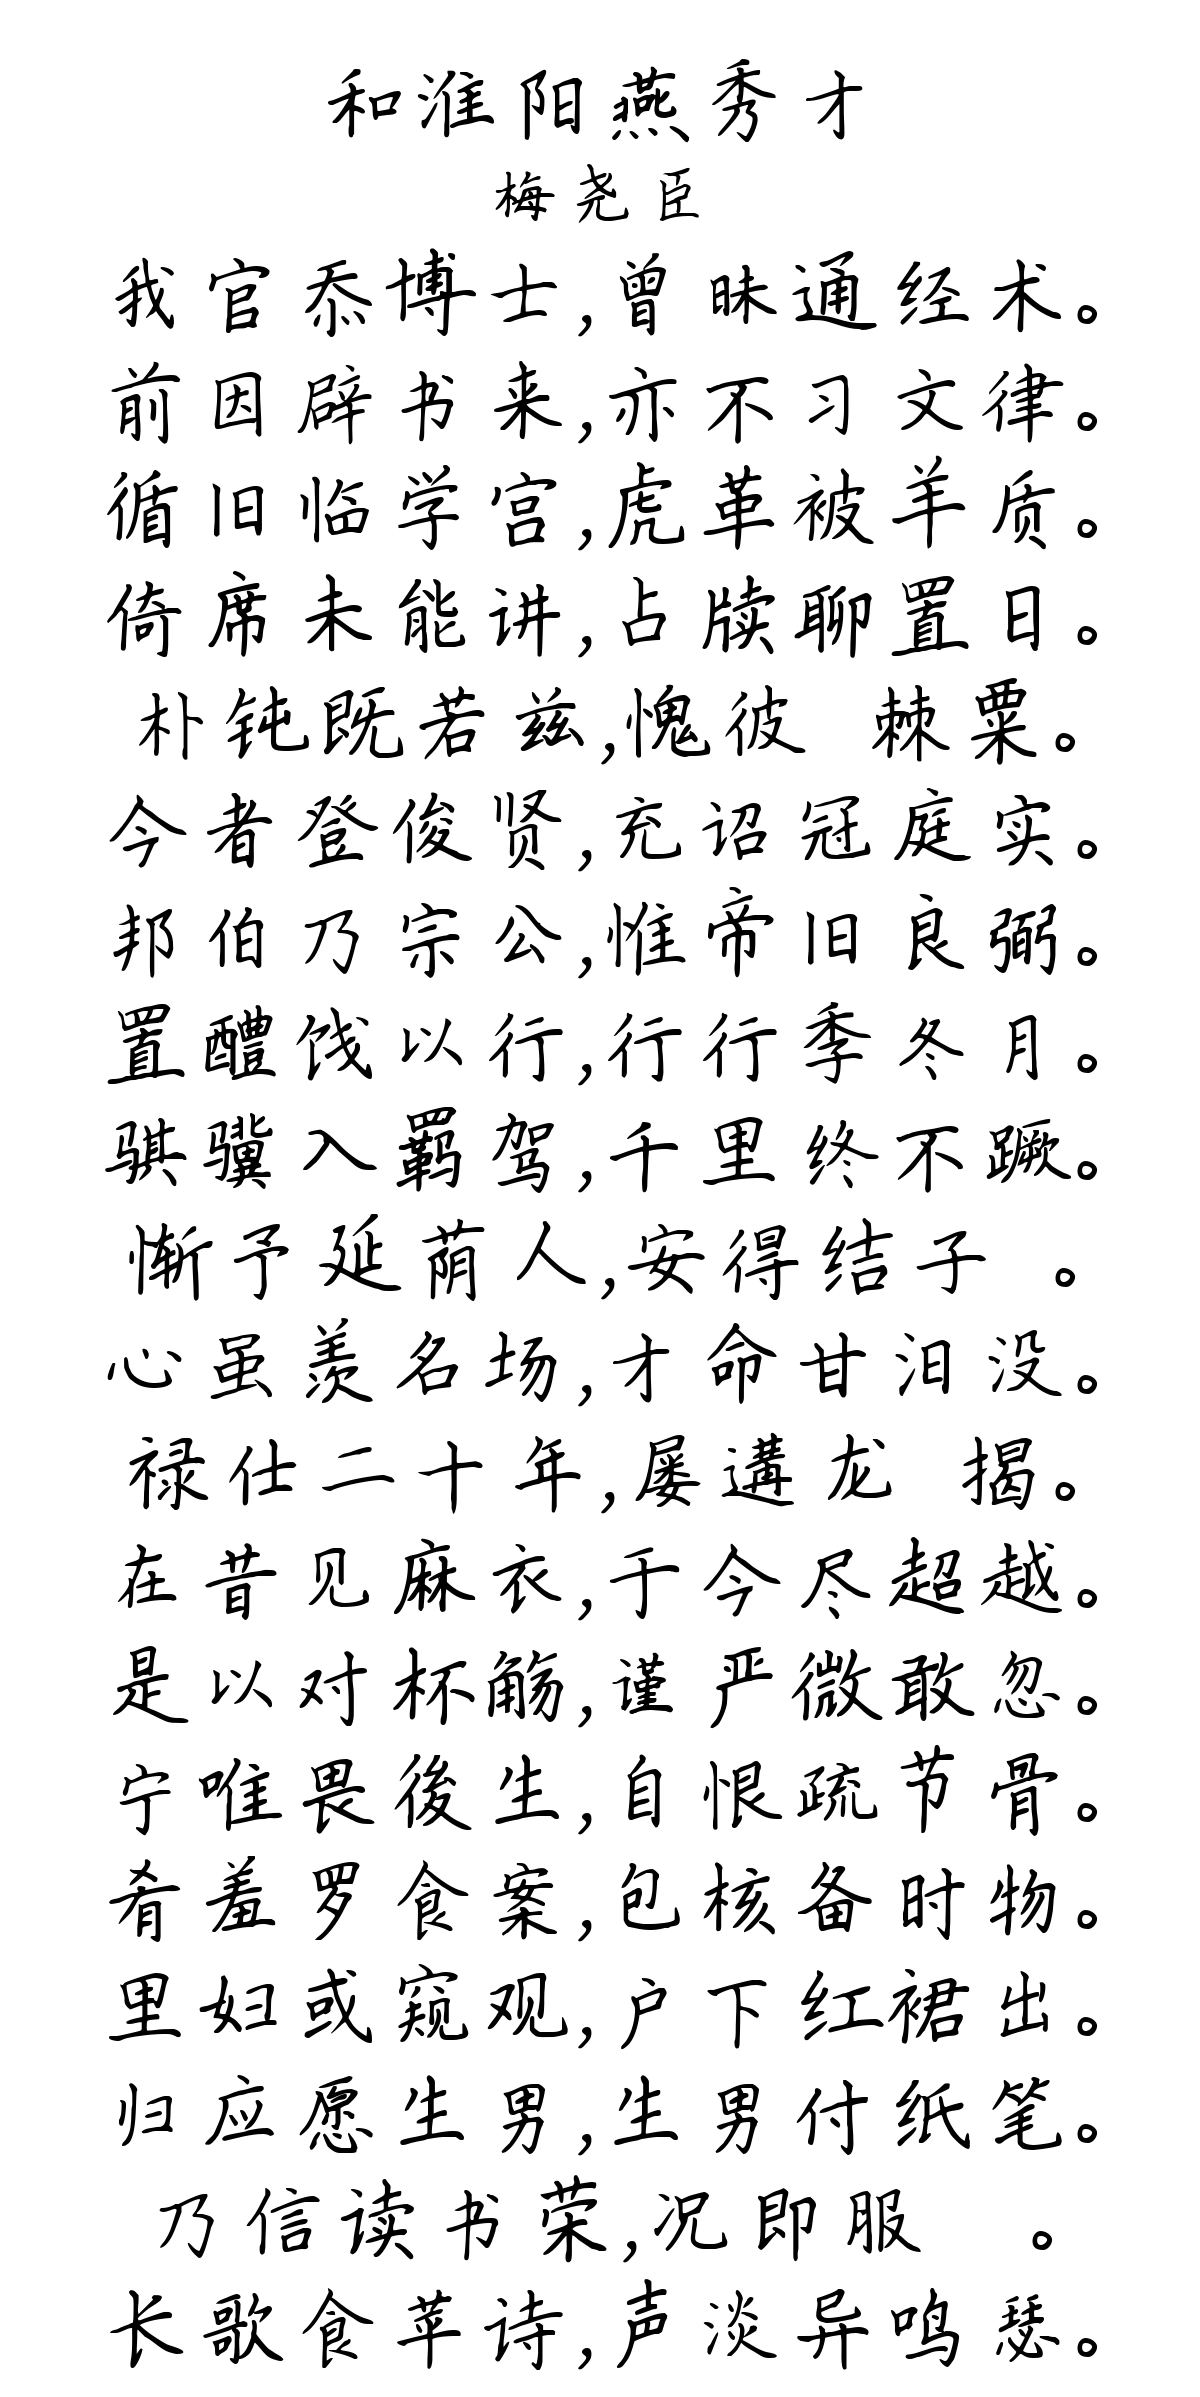 和淮阳燕秀才
梅尧臣
我官忝博士,曾昧通经术。
前因辟书来,亦不习文律。
循旧临学宫,虎革被羊质。
倚席未能讲,占牍聊置日。
朴钝既若兹,愧彼 棘粟。
今者登俊贤,充诏冠庭实。
邦伯乃宗公,惟帝旧良弼。
置醴饯以行,行行季冬月。
骐骥入羁驾,千里终不蹶。
惭予延荫人,安得结子 。
心虽羡名场,才命甘汨没。
禄仕二十年,屡遘龙 揭。
在昔见麻衣,于今尽超越。
是以对杯觞,谨严微敢忽。
宁唯畏後生,自恨疏节骨。
肴羞罗食案,包核备时物。
里妇或窥观,户下红裙出。
归应愿生男,生男付纸笔。
乃信读书荣,况即服 。
长歌食苹诗,声淡异鸣瑟。